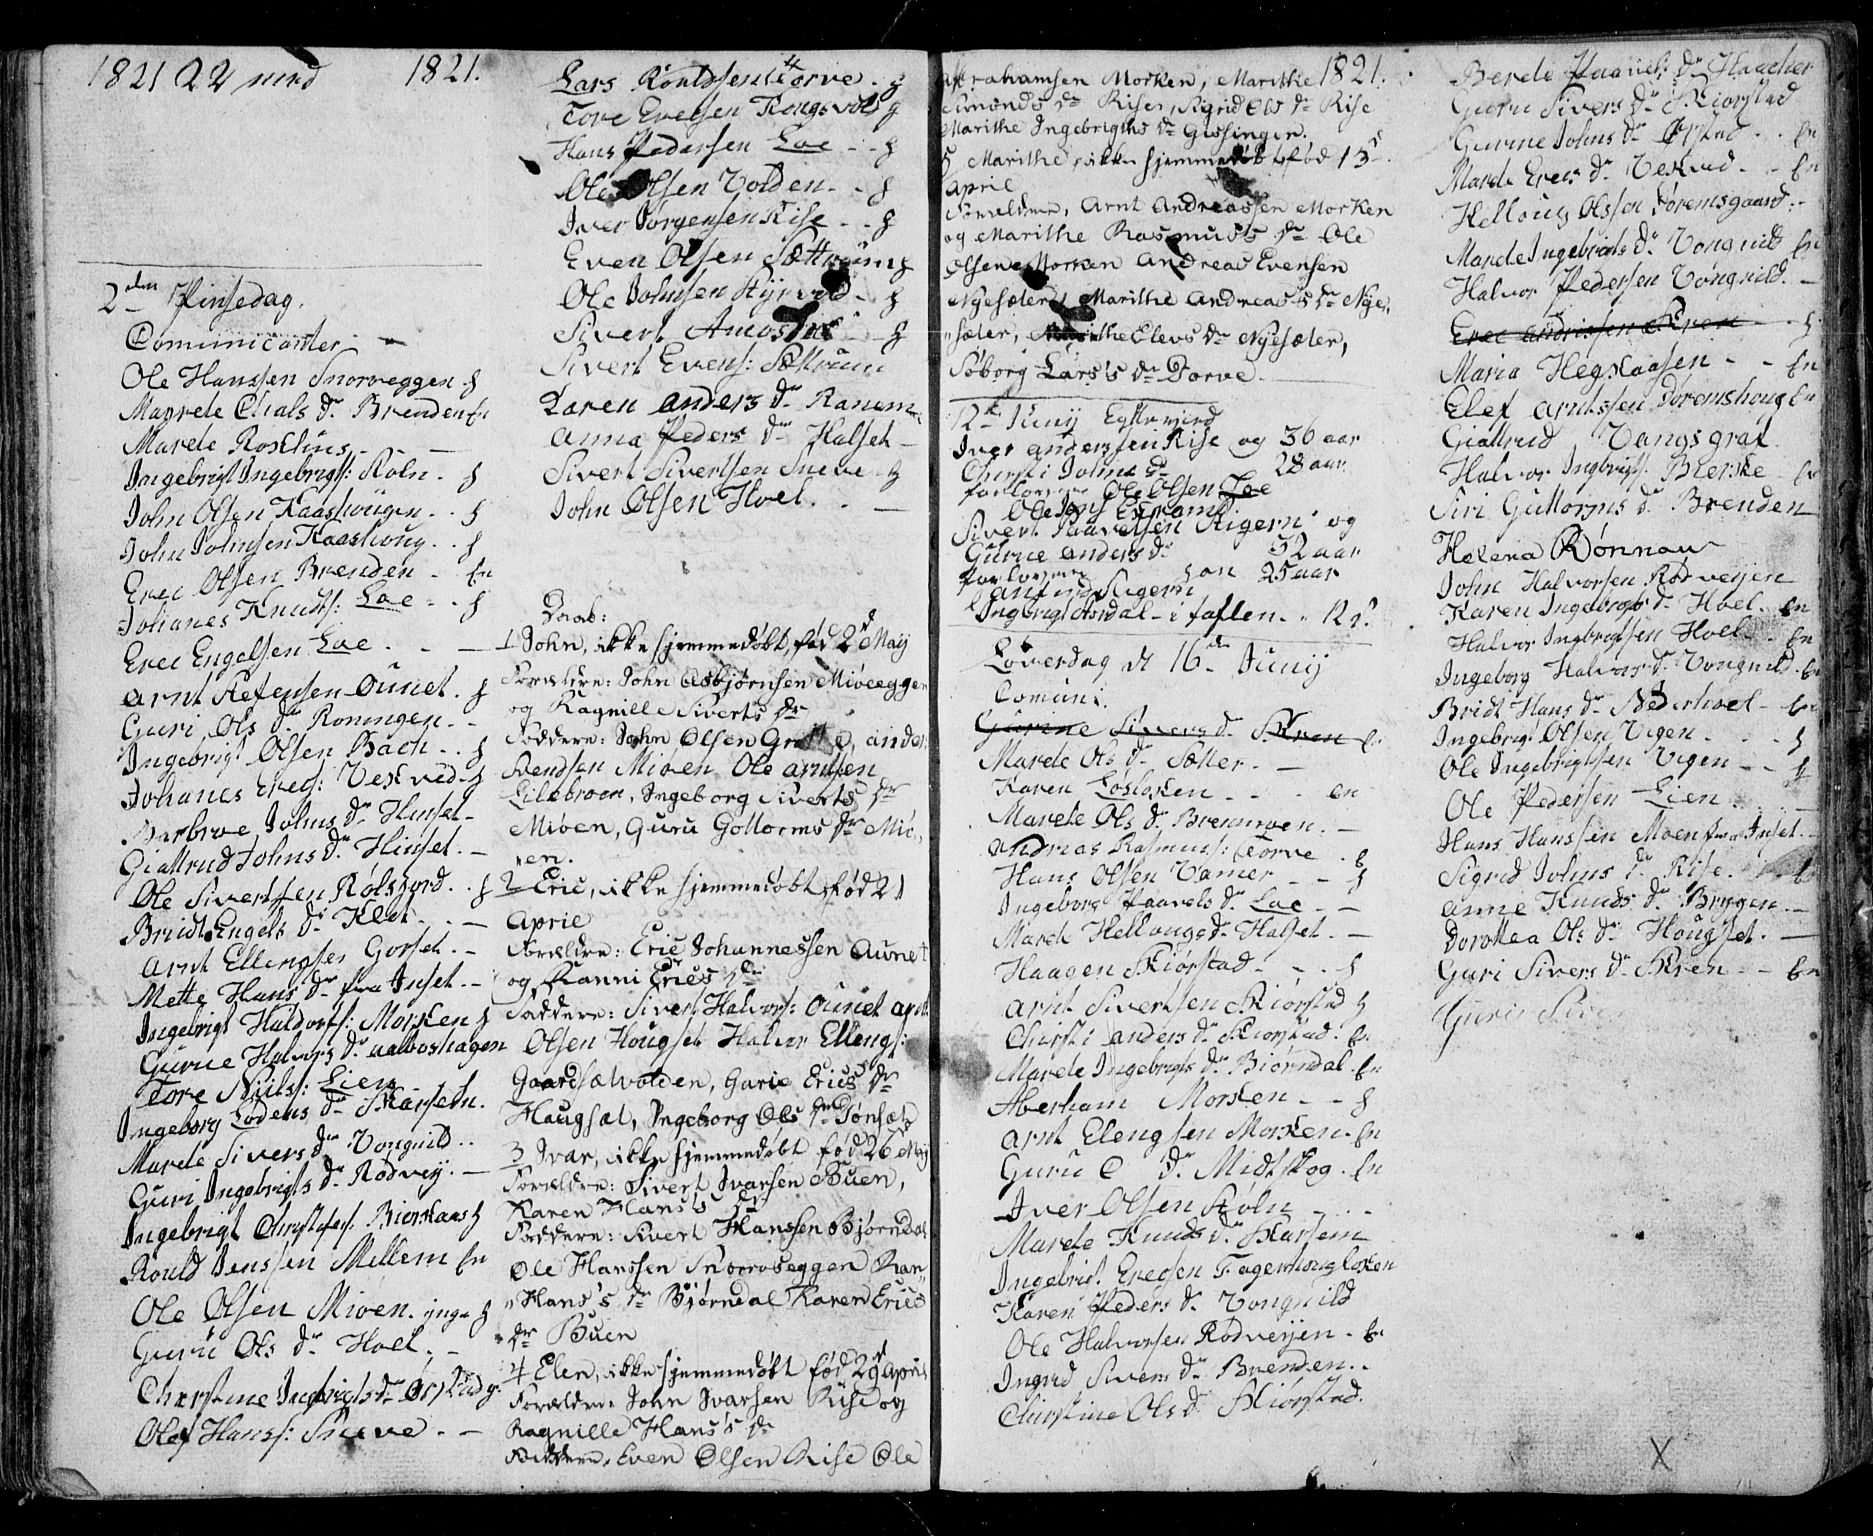 1821 22 1821.
2den Pinsedag.
Comunicanter
Ole Hanssen Snorveggen
Magrete Ols dr Brenden En
Marete Roseliins
Ingebrigt Ingebrigts: Roln
John Olsen Kaashougen
John Johnsen Kaashoug
Erec Olsen Brenden - En
Johanes Knuts: Loe
Erec Engelsen Loe
Arnt Stefensen Ounet
Guri Ols dr Roningen
Ingebrigt Olsen Bach
Johanes Erecs: Vekved
Barbroe Johns dr Hinset
Giattrud Johns dr Hinset
Ole Sivertsen Rølsjord
Bridt Engels dr Klet
Arnt Ellengsen Gorset
Mette Hans dr fra Inset
Ingebrigt Haldorss: Morken
Gurue Halvors dr Aalboshagen
Tore Niils: Lien
Ingeborg Lodens dr Skarsem
Marete Sivers dr Vongnild
Guri Ingebrigts dr Rodveij
Ingebrigt Christofers: Bierkaas
Rould Jenssen Mellem En
Ole Olsen Mioen. ynge
Guru Ols dr Hoel
Cherstine Ingbrigts dr
Olef Hanss: Sneve
Lars Roaldssen Torve
Tore Evensen Kongsvold
Hans Pedersen Loe
Ole Olsen Volden
Iver Jørgensen Rise
Even Olsen Sættrum
Ole Johnsen
Sivert Amos
Sivert Evens: Sættrum
Karen Anders dr Ranem
Anna Peders dr Halset
Sivert Sivertsen Sneve
John Olsen Hoel
Daab:
1 John, ikke hjemmedøbt, fød 2d Maij
Forældre: John Asbjørnsen Mioeeggen
og Ragnille Siverts dr
Faddere: John Olsen Anders
Svendsen Mioen Ole Arntsen
Lilebroen, Ingeborg Siverts dr
Mioen, Guru Gottorms dr Mio„
„en.
2 Eric, ikke hjemmedøbt fød 21
April
Forældre: Eric Johannessen Aunet
og Ranni Erics dr
Faddere: Sivert Halvors: Ounet Arnt
Olsen Hougset Halvor Ellengs:
Gaardsætvolden, Gurie Erics dr
Haugsæt, Ingeborg Ols dr Tønsæt
3 Ivar, ikke hjemmedøbt fød 26 Maij
Forældre: Sivert Ivarsen Buen,
Karen Hans's dr
Faddere: Sivert Hanssen Bjørndal
Ole Hanssen Snorroeggen Ran„
„Hans's dr Bjørndal Karen Erics
dr Buen
4 Elen, ikke hjemmedøbt fød 29 April
Forældre John Ivarsen Rise og
Ragnille Hans's dr
Faddere, Even Olsen Rise Ole
Abrahamsen Morken, Marithe 1821.
Simonds dr Rise, Sigrid Ols dr Rise
Marithe Ingebrigths dr Gissinger.
5 Marithe, ikke hjemmedøbt fød 15d
April
Forældre, Arnt Andreassen Morken
og Marithe Rasmus's dr Ole
Olsen Morken Andreas Evensen
Nyesæter, Marithe Andreas's dr Nye„
„sæter, Marithe Elevs dr Nyesæter,
Søborg Lars's dr Dorve
12te Junij Egtevied
Iver Anderssen Rise og 36 aar
Chersti Johns dr 28 aar
forlovere Ole Olsen Loe
Ole Jons
Sivert Paavelsen Stigern og
Gurue Anders dr 32 aar
forlovere 25 aar
Stigern
Ingbrigt i taflen 12 s.
Løverdag d 16de Junij
Comuni:
Gurine Sivers dr Skren En
Marete Ols dr Sætter
Karen Løsloken en
Marete Ols dr Brennmoen
Andreas Rasmus: Torve
Hans Olsen Vamer
Ingeborg Paavels dr Loe
Marete Hellougs dr Halset
Haagen Skiørstad
Arnt Sivertsen Skiørstad
Chersti Anders dr Skiorstad. En
Marete Ingebrigts dr Biørndal. En
Aberham Morken
Arnt Elengsen Morken. En
Guru O dr Midtskog. En
Iver Olsen Stoln
Marete Knuds dr Skarsem
Ingebrigt Erecsen Fagerhougløken
Karen Peders dr Vongnild
Ole Halvorsen Rodveijen. En
Ingrid Sivers dr Brenden
Cherstine Ols dr Skiørstad.
Berete Paavels dr Haacher
Guru Sivers dr Skiorstad
Gurine Johns dr Ørstad En
Marete Erecs dr Vekved En
Helloug Olssen Dørremsgaard
Marete Ingebrigts dr Vongnild En
Halvor Pedersen Vongnild
Erec Andrissen Skren
Maria Hegkaasen En
Elef Arntssen Doremshoug En
Giattrud Vangsgrat
Halvor Ingbrigts: Bierke En
Siri Guttorms dr Brenden
Helena Rønnau
John Halvorsen Rodveijen
Karen Ingebrigts dr Hoel En
Halvor Ingbrigtsen Hoel En
Ingeborg Halvors dr Vongnild. En
Bridt Hans dr Nederhoel En
Ingebrigt Olsen Vigen
Ole Ingebrigtsen Vigen
Ole Pedersen Lien
Hans Hanssen Moen fra Inset
Sigrid Johns dr Rise
Anne Knuds dr Bryggen
Dorothea Ols dr Hougset
Guri Sivers dr Skren En
Guri Siv
X